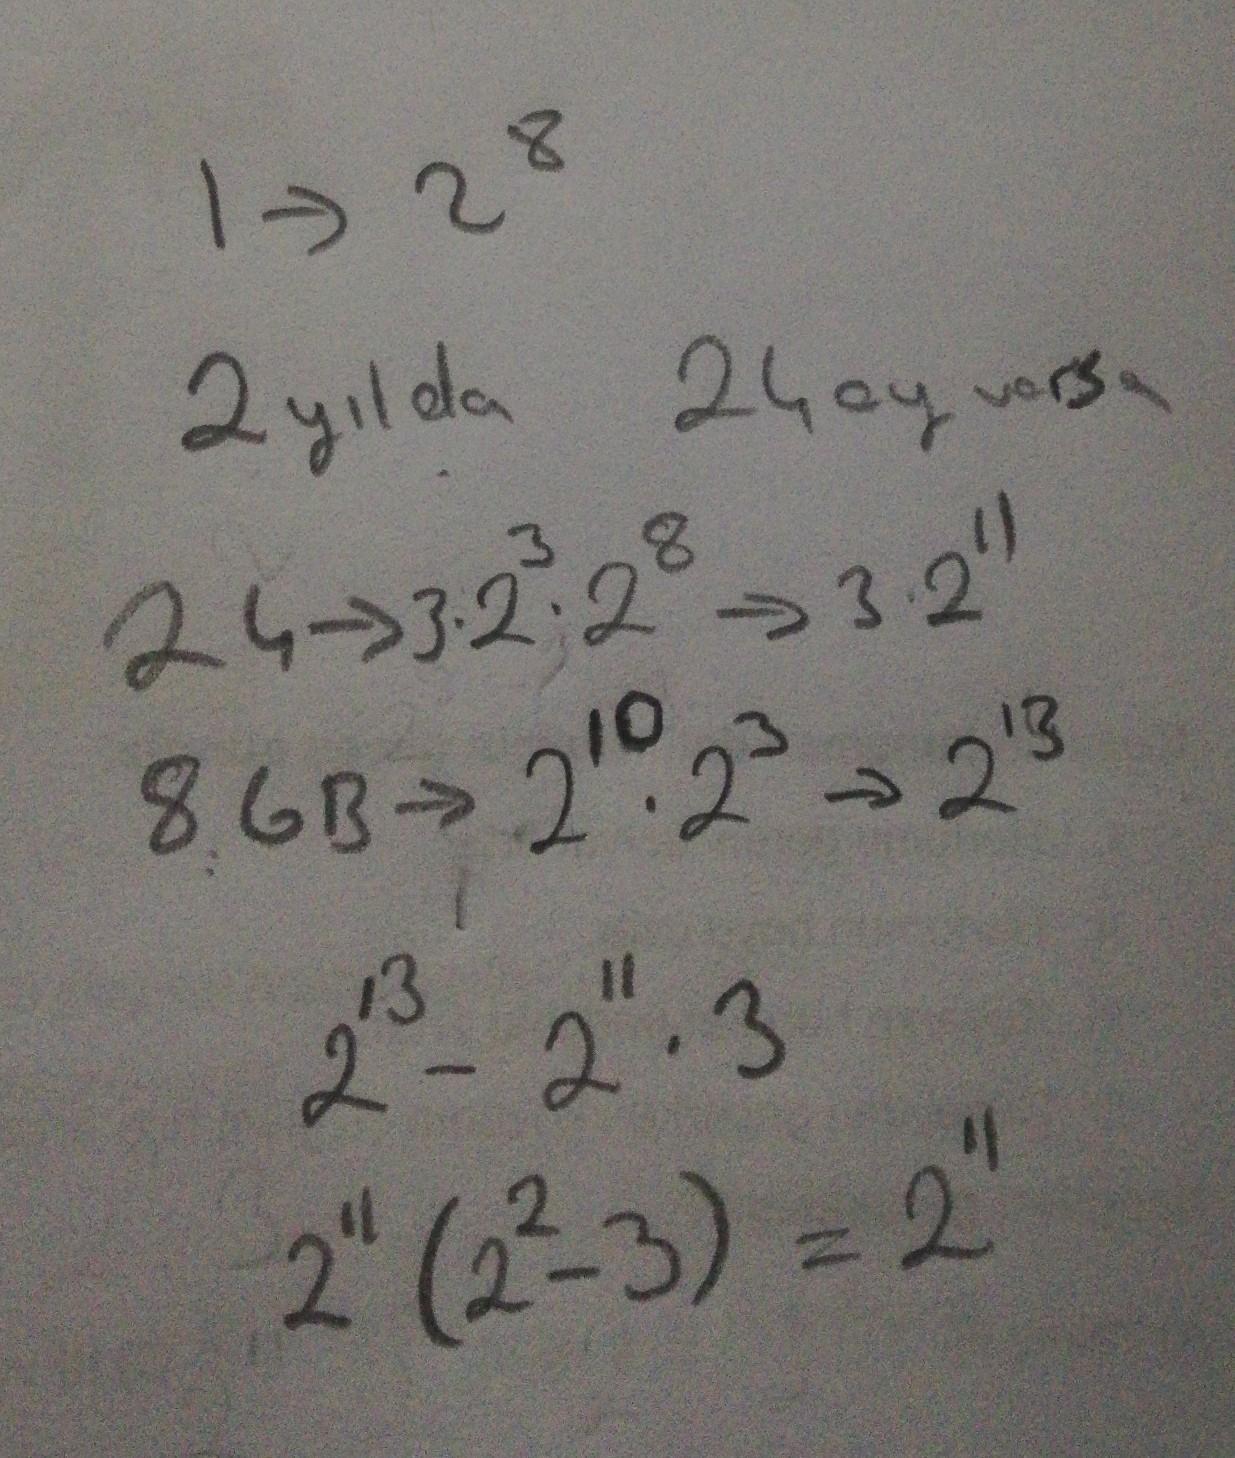 1 → 2⁸
2 yılda 24 ay varsa
24 → 3·2³·2⁸ → 3·2¹¹
8 GB → 2¹⁰·2³ → 2¹³
2¹³ - 2¹¹·3
2¹¹(2²-3) = 2¹¹